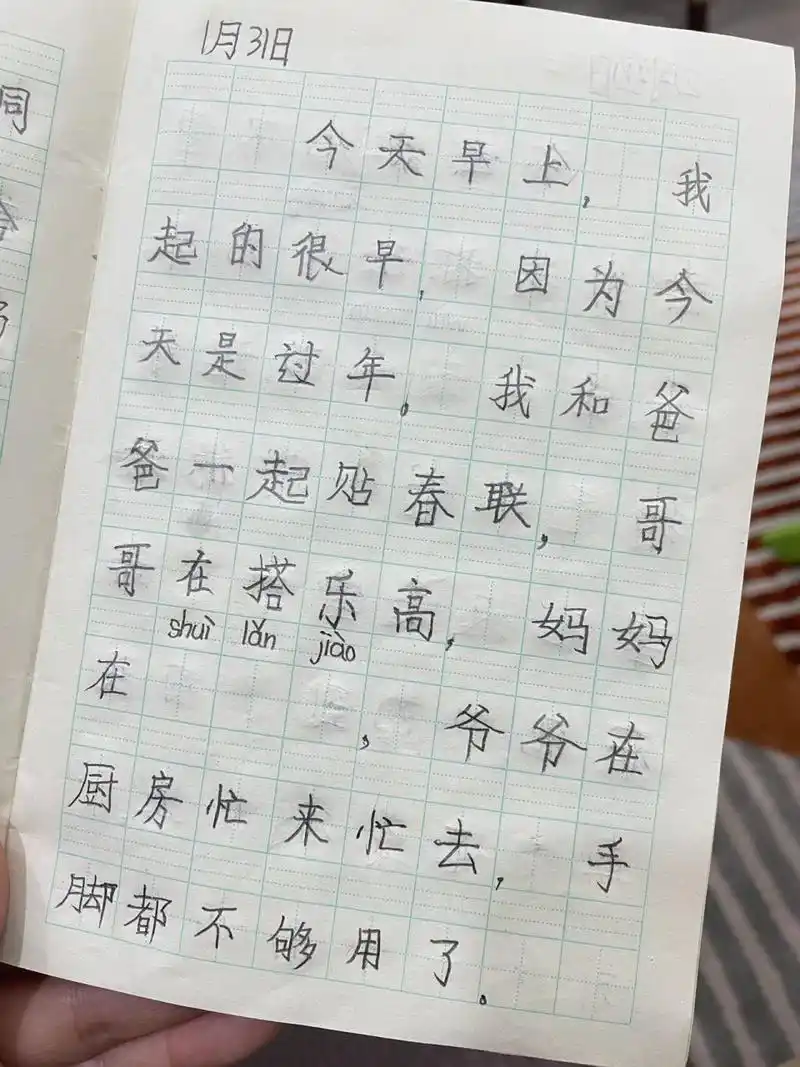 1月31日
今天早上，我
起的很早，因为今
天是过年。我和爸
爸一起贴春联，哥
哥在搭乐高，妈妈
shuì lǎn jiào
在，爷爷在
厨房忙来忙去，手
脚都不够用了。
同